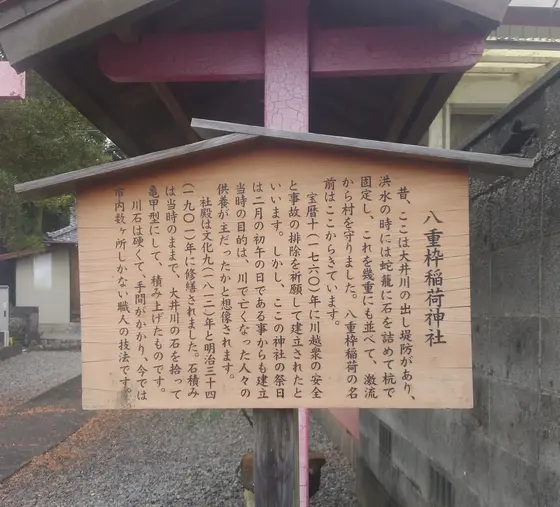 八重枠稲荷神社
昔、ここは大井川の出し堤防があり、
洪水の時には蛇籠に石を詰めて杭で
固定し、これを幾重にも並べて、激流
から村を守りました。八重枠稲荷の名
前はここからきています。
宝暦十(一七六〇)年に川越衆の安全
と事故の排除を祈願して建立されたと
いいます。しかし、ここの神社の祭日
は二月の初午の日である事からも建立
当時の目的は、川で亡くなった人々の
供養が主だったかと想像されます。
社殿は文化九(一八一二)年と明治三十四
(一九〇一)年に修繕されました。石積み
は当時のままで、大井川の石を拾って
亀甲型にして、積み上げたものです。
川石は硬くて、手間がかかり、今では
市内数ヶ所しかない職人の技法です。